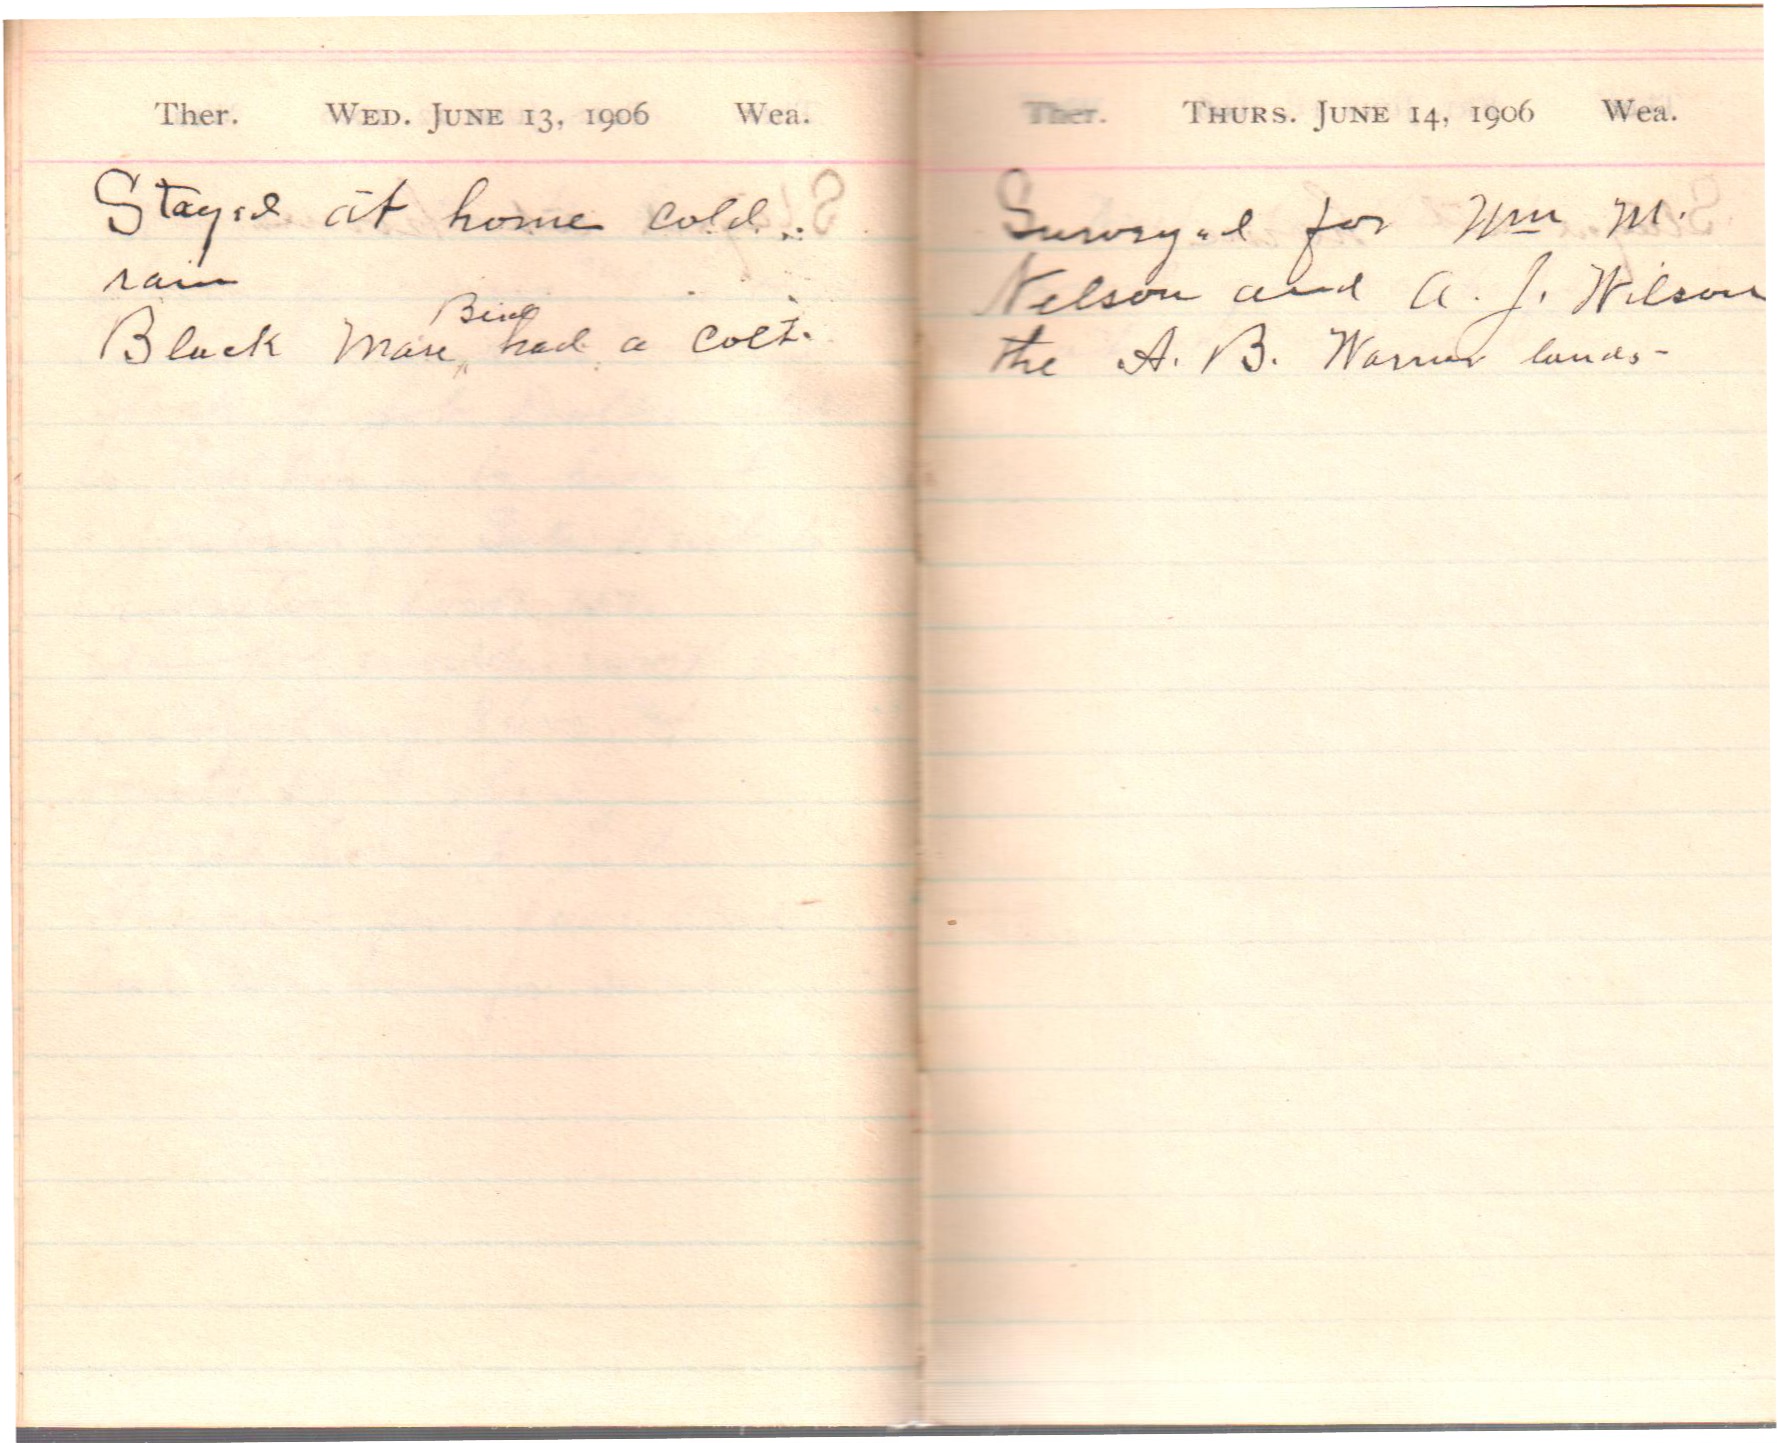 Ther. WED. JUNE 13, 1906 Wea.
Stayed at home cold.
rain
Bird
Black Mare had a colt.
Ther. THURS. JUNE 14, 1906 Wea.
Surveyed for Wm M.
Nelson and A. J. Wilson
the A. B. Warner lands-